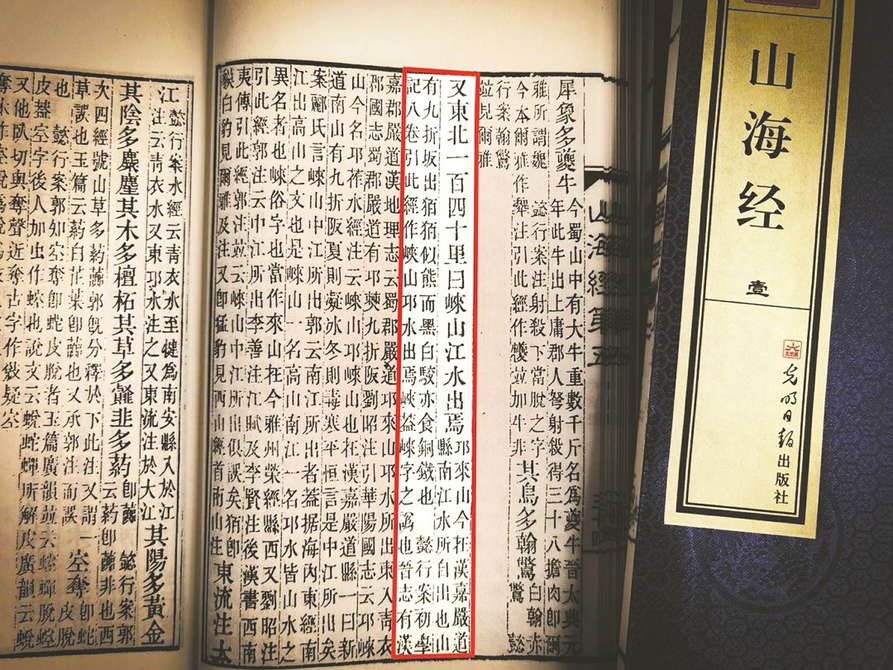 犀象多夔牛今蜀山中有大牛重數千斤名為夔牛晉太興元
年此牛出上庸郡人弩射殺得三十八擔肉即爾
雅所謂魏 懿行案注射殺下當脫之字
今本爾雅作犩注引此經作犪並加牛非
其鳥多翰鷩白翰赤鷩 懿
行案翰鷩
並見爾雅
又東北一百四十里曰崍山江水出焉邛來山今在漢嘉嚴道
縣南江水所自出也山
有九折坂出狛狛似熊而黑白駮亦食銅鐵也 懿行案初學
記八卷引此經作峽山邛水出焉峽蓋崍字之譌也晉志有漢
嘉郡嚴道漢地理志云蜀郡嚴道邛來山邛水所出東入青衣
郡國志蜀郡嚴道有邛僰九折阪劉昭注引華陽國志云邛崍
山今名邛莋水經注云崍山邛崍山也在漢嘉嚴道縣一曰新
道南山有九折阪夏則凝冰冬則毒寒平恒言是中江所出矣
案酈氏言崍山中江所出郭云南江所出者蓋据海內東經南
江出高山之文也是崍山一名高山南江一名邛水皆山水之
異名者也崍俗字也當作來山在今雅州榮經縣西又劉昭注
引此經郭注云中江所出李善注江賦及李賢注後漢書西南
夷傳引此經郭注並云崍山中江所出俱誤矣狛即
白豹見爾雅及注又即猛豹見西山首南山注
東流注大
山海經第五
江懿行案水經云青衣水至犍為南安縣入於江
注云青衣水又東邛水注之又東流注於大江
其陽多黃金
其陰多麋麈其木多檀柘其草多䪥韭多葯即蘺 懿行案郭
云葯即蘺非也西
次四經號山草多葯蘺郭既分釋於下此注又謂一
草誤也玉篇云葯白芷葉即蘺也又承郭注而誤
空奪即蛇
皮脫
也 懿行案郭知空奪即蛇皮脫者玉篇廣韻並云蟬脫蛇
皮蓋空字後人加出作也說文云蛻蛇蟬所解皮廣韻云蛻
又他臥切與奪聲近奪古字作敓疑空
山海经
壹
光明日报出版社